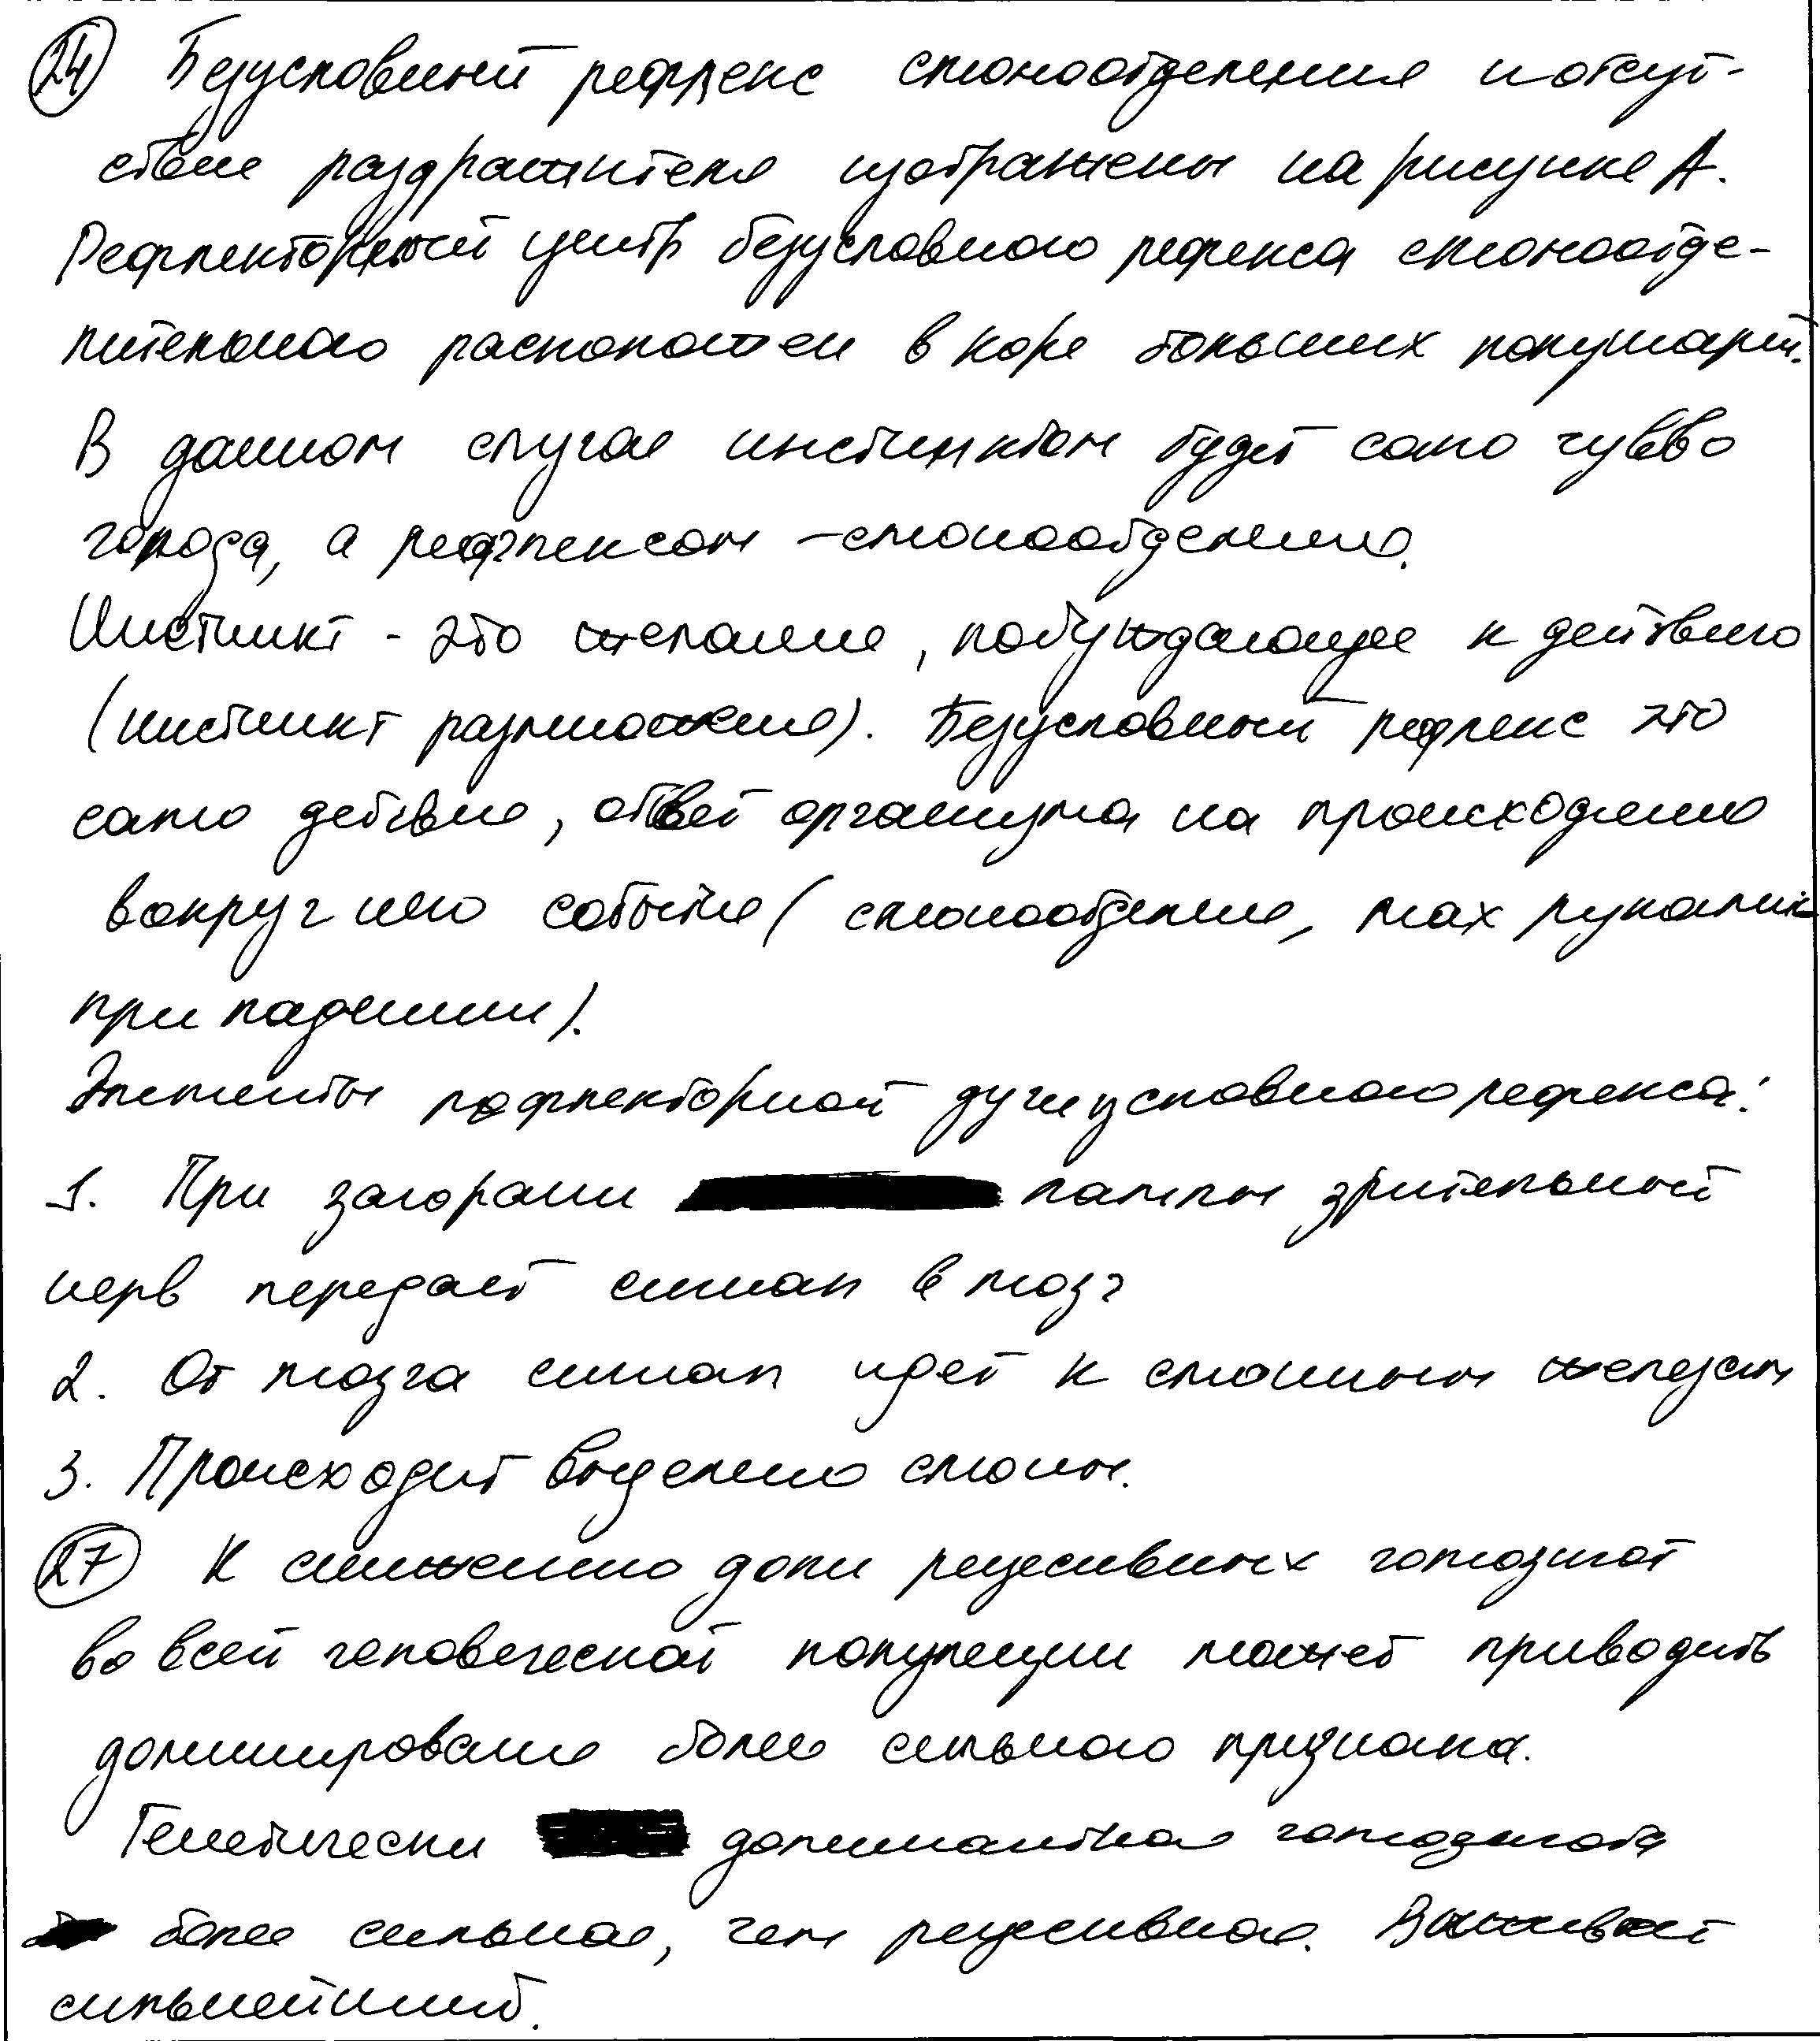 24 Безусловный рефлекс слюноотделения и отсут-
ствие раздражителя изображены на рисунке А.
Рефлекторный центр безусловного рефлекса слюноотде-
лительного расположен в коре больших полушарий.
В данном случае инстинктом будет само чувво
голода, а рефлексом – слюноотделение.
Инстинкт - это желание, побуждающее к действию
(инстинкт размножения). Безусловный рефлекс это
само действие, ответ организма на происходящие
вокруг него события (слюноотделение, мах руками
при падении).
Элементы рефлекторной дуги условного рефлекса:
1. При загорании лампы зрительный
нерв передает сигнал в мозг
2. От мозга сигнал идет к слюнным железам
3. Происходит выделение слюны.
27 К снижению доли рецесивных гомозигот
во всей человеческой популяции может приводить
доминирование более сильного признака.
Генетически доминантная гомозигота
более сильная, чем рецесивная. Выживает
сильнейший.